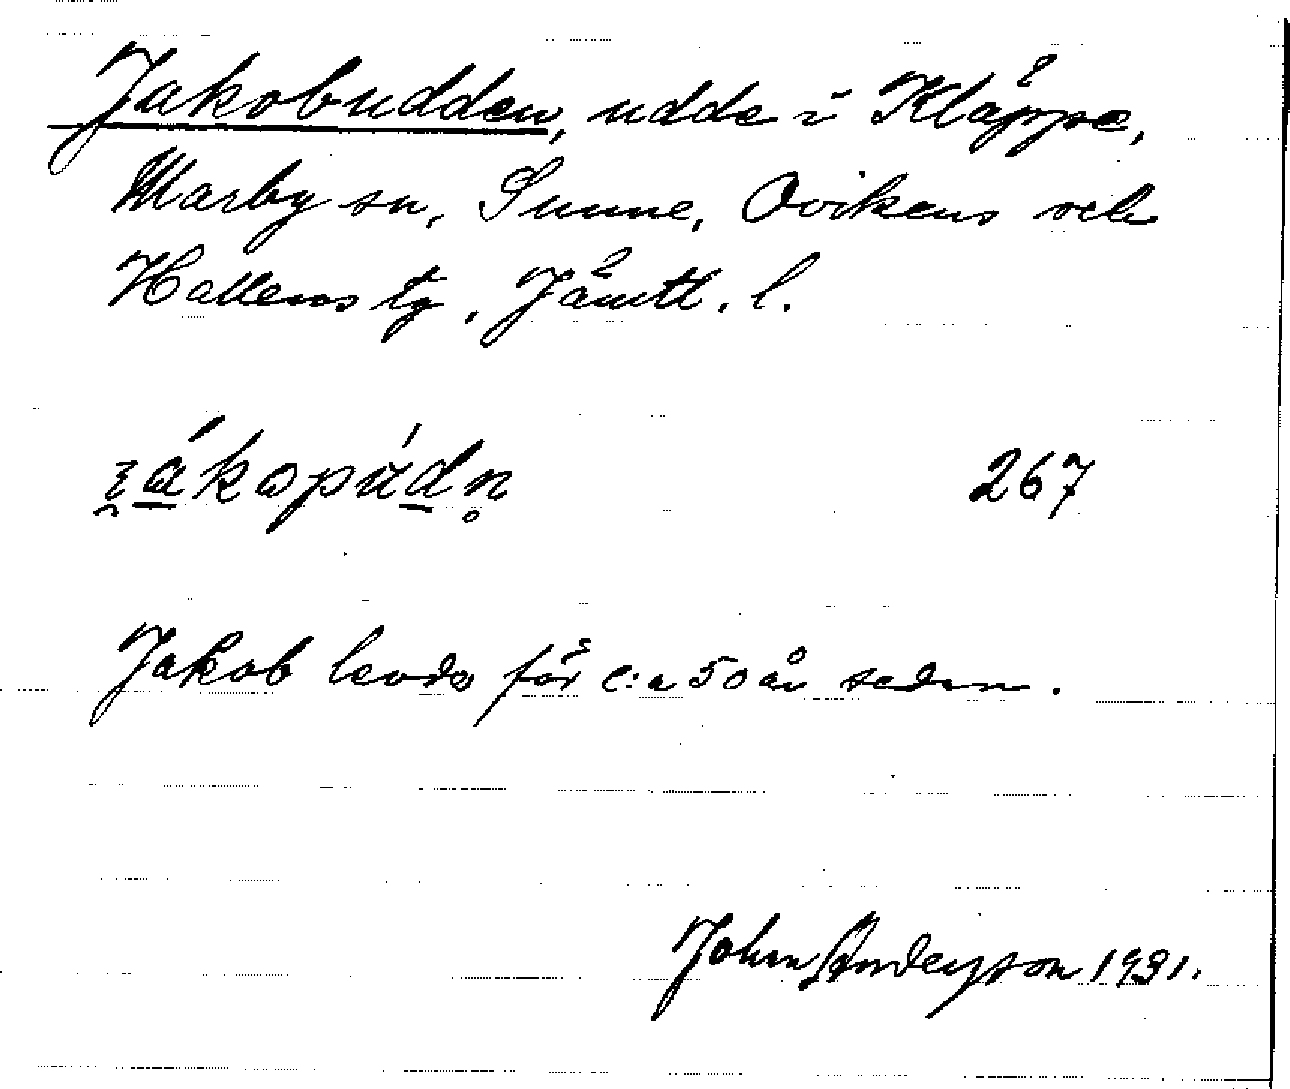 Jakobudden, udde i Kläppe,
Marby sn, Sunne, Ovikens och
Hallens tg, Jämtl. l.
267
Jakob levde för c:a 50 år sedan.
John Anderson 1931.